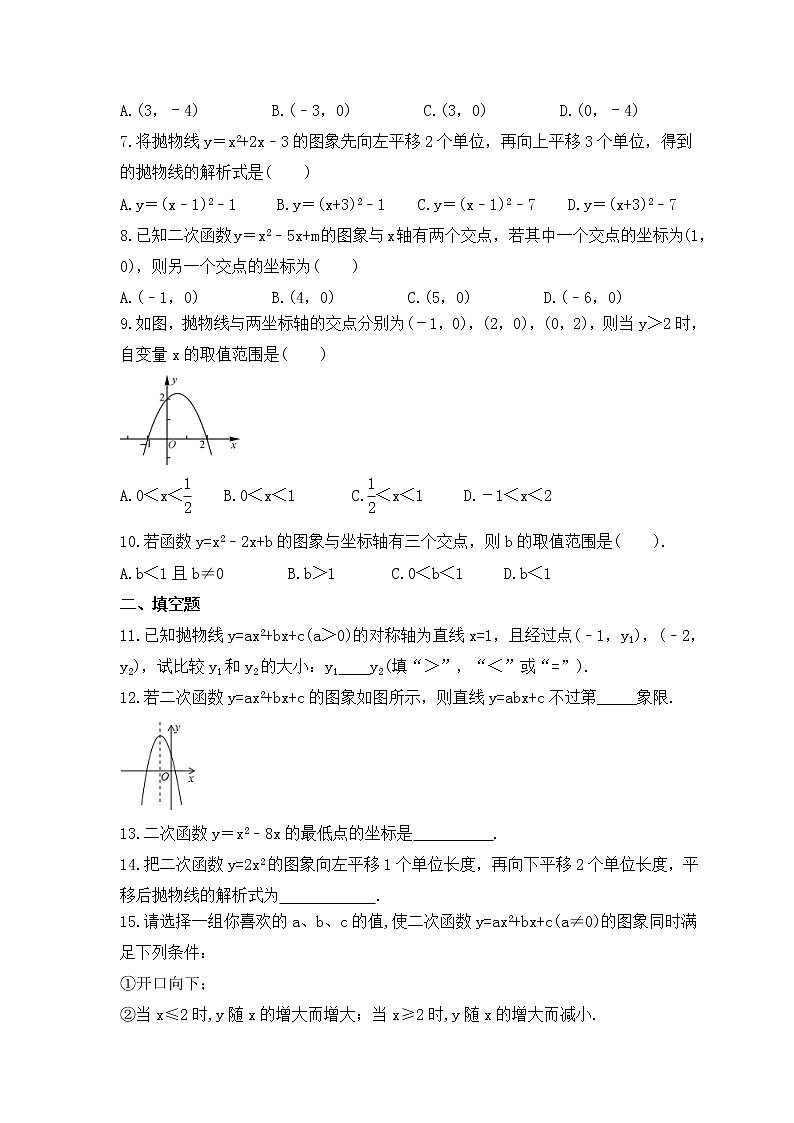 A.(3,﹣4) B.(﹣3,0) C.(3,0) D.(0,﹣4)
7.将抛物线y＝x²+2x﹣3的图象先向左平移2个单位，再向上平移3个单位，得到
的抛物线的解析式是( )
A.y＝(x﹣1)²﹣1 B.y＝(x+3)²﹣1 C.y＝(x﹣1)²﹣7 D.y＝(x+3)²﹣7
8.已知二次函数y＝x²﹣5x+m的图象与x轴有两个交点，若其中一个交点的坐标为(1，
0)，则另一个交点的坐标为( )
A.(﹣1，0) B.(4，0) C.(5，0) D.(﹣6，0)
9.如图，抛物线与两坐标轴的交点分别为(－1，0)，(2，0)，(0，2)，则当y＞2时，
自变量x的取值范围是( )
y
2
－1 O 2 x
A.0＜x＜1/2 B.0＜x＜1 C.1/2＜x＜1 D.－1＜x＜2
10.若函数y=x²﹣2x+b的图象与坐标轴有三个交点，则b的取值范围是( ).
A.b＜1且b≠0 B.b＞1 C.0＜b＜1 D.b＜1
二、填空题
11.已知抛物线y=ax²+bx+c(a＞0)的对称轴为直线x=1，且经过点(﹣1，y₁)，(﹣2，
y₂)，试比较y₁和y₂的大小：y₁____y₂(填“＞”，“＜”或“=”).
12.若二次函数y=ax²+bx+c的图象如图所示，则直线y=abx+c不过第_____象限.
y
O x
13.二次函数y＝x²﹣8x的最低点的坐标是__________.
14.把二次函数y=2x²的图象向左平移1个单位长度，再向下平移2个单位长度，平
移后抛物线的解析式为____________.
15.请选择一组你喜欢的a、b、c的值,使二次函数y=ax²+bx+c(a≠0)的图象同时满
足下列条件：
①开口向下；
②当x≤2时,y随x的增大而增大；当x≥2时,y随x的增大而减小.